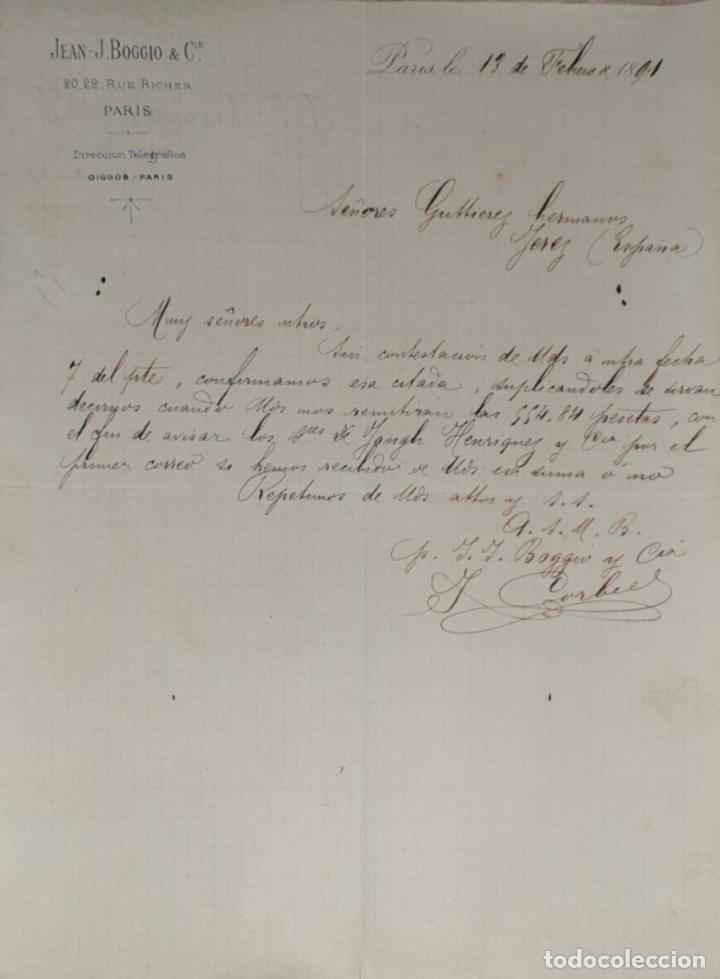 JEAN-J. BOGGIO & CIE.
20,22. RUE RICHER
PARIS
Direccion Telegrafica
OIGGOB-PARIS
Paris, le 13 de Febrero 1891
Señores Guttierez hermanos,
Jerez (España)
Muy señores ntros,
Sin contestacion de Uds á ntra fecha
7 del pte, confirmamos esa citada, suplicandoles se sirvan
decirnos cuando Uds nos remitirán las 554.84 pesetas, con
el fin de avisar los Sres de Jongh Henriquez y Cia por el
primer correo si hemos recibido de Uds esa suma ó no
Repetimos de Uds attos y s.s.
Q.S.M.B.
p. J.J. Boggio y Cia
todocoleccion.net